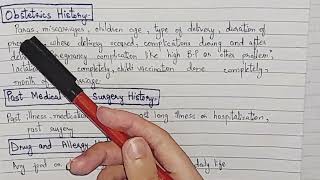 Obstetrics History:-
Paras, miscarriages, children age, type of delivery, duration of
where delivery occured, complications during and after
pregnancy complication like high B.P or other problem,
completely, child vaccination done completely,
month
Past Medical Surgery History:-
Past illness, medication long illness or hospitalization,
past surgery
Drug and Allergy
Any food or daily life